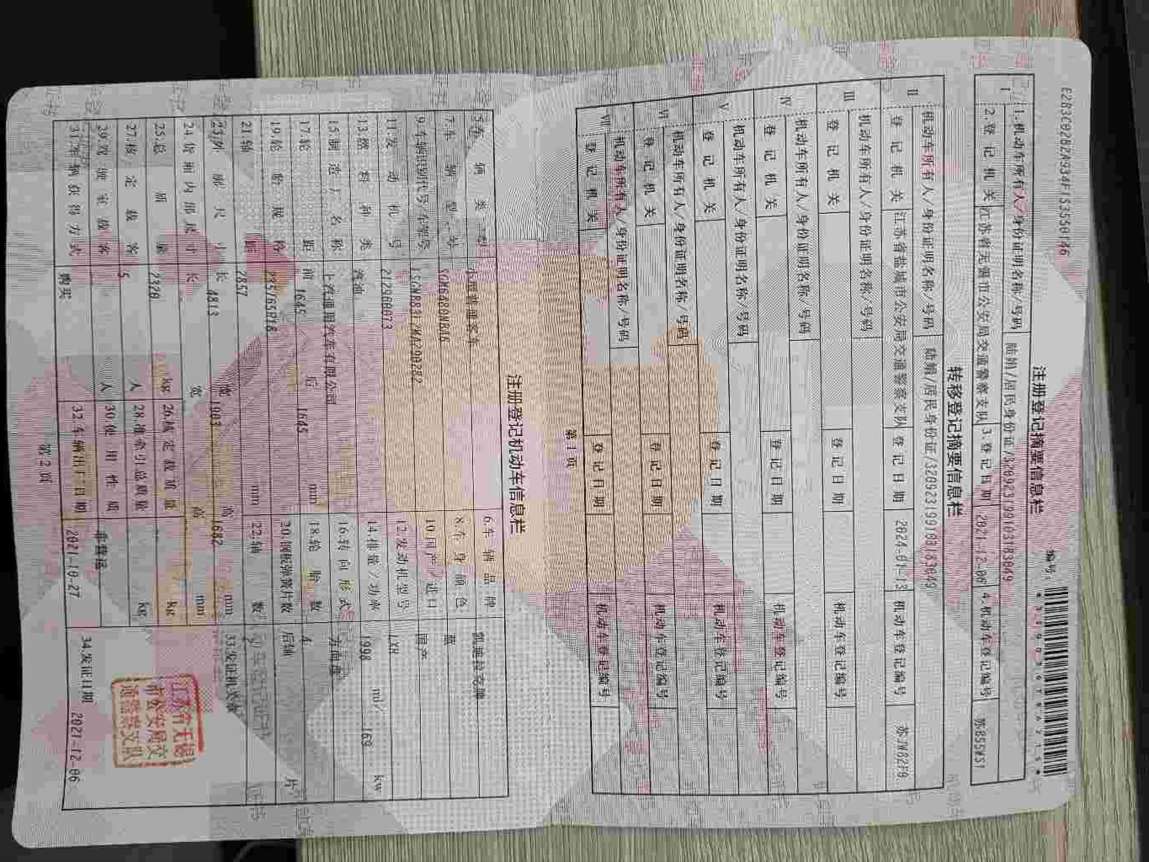 注册登记摘要信息栏
编号:
Ⅰ
1.机动车所有人/身份证明名称/号码
2.登记机关 江苏省无锡市公安局交通警察支队 3.登记日期 2021-12-06 4.机动车登记编号
转移登记摘要信息栏
Ⅱ
机动车所有人/身份证明名称/号码
登记机关 江苏省盐城市公安局交通警察支队 登记日期 2024-01-13 机动车登记编号
Ⅲ
机动车所有人/身份证明名称/号码
登记机关 登记日期 机动车登记编号
Ⅳ
机动车所有人/身份证明名称/号码
登记机关 登记日期 机动车登记编号
Ⅴ
机动车所有人/身份证明名称/号码
登记机关 登记日期 机动车登记编号
Ⅵ
机动车所有人/身份证明名称/号码
登记机关 登记日期 机动车登记编号
Ⅶ
机动车所有人/身份证明名称/号码
登记机关 登记日期 机动车登记编号
第1页
注册登记机动车信息栏
5.车辆类型 小型普通客车 6.车辆品牌 凯迪拉克牌
7.车辆型号 8.车身颜色 蓝
9.车辆识别代号/车架号 10.国产/进口 国产
11.发动机号 12.发动机型号 LXH
13.燃料种类 汽油 14.排量/功率 1998 ml/ 169 kw
15.制造厂名称 上汽通用汽车有限公司 16.转向形式 方向盘
17.轮距 前 1645 后 1645 mm 18.轮胎数 4
19.轮胎规格 235/65R18 20.钢板弹簧片数 后轴 片
21.轴距 2857 mm 22.轴数 2
23.外廓尺寸 长 4813 宽 1903 高 1682 mm
24.货厢内部尺寸 长 宽 高 mm
33.发证机关章
江苏省无锡市公安局交通警察支队
25.总质量 2320 kg 26.核定载质量 kg
27.核定载客 5 人 28.准牵引总质量 kg
29.驾驶室载客 人 30.使用性质 非营运
31.车辆获得方式 购买 32.车辆出厂日期 2021-10-27 34.发证日期 2021-12-06
第2页